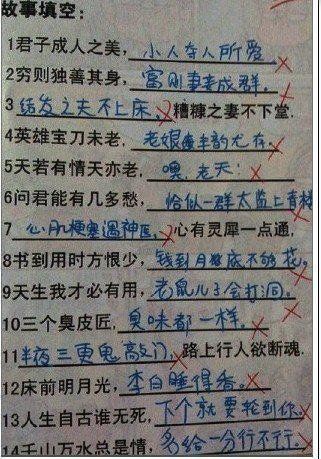 故事填空：
1君子成人之美，小人夺人所爱。
2穷则独善其身，富则妻妾成群。
3结发之夫不上床，糟糠之妻不下堂．
4英雄宝刀未老，老娘丰韵尤存。
5天若有情天亦老，噢，老天
6问君能有几多愁，恰似一群太监上青楼
7心肌梗塞遇神医，心有灵犀一点通，
8书到用时方恨少，钱到月底不够花。
9天生我才必有用，老鼠儿子会打洞。
10三个臭皮匠，臭味都一样。
11半夜三更鬼敲门，路上行人欲断魂．
12床前明月光，李白睡得香。
13人生自古谁无死，下个就要轮到你
14千山万水总是情，多给一分行不行。